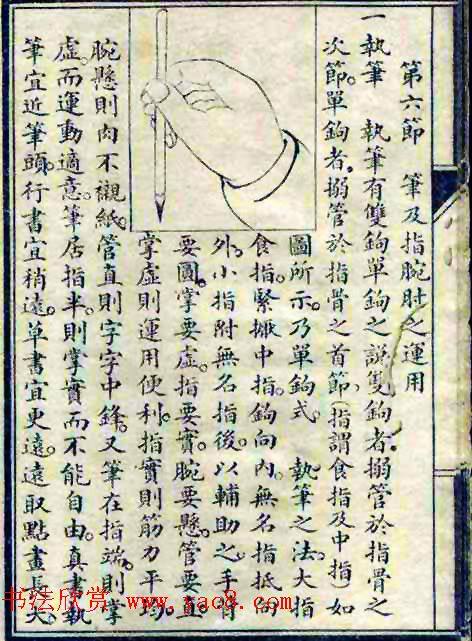 第六節　筆及指腕肘之運用
一執筆　執筆有雙鉤單鉤之説雙鉤者。搦管於指骨之
次節單鉤者。搦管於指骨之首節。(指謂食指及中指)如
圖所示。乃單鉤式　執筆之法大指
食指。緊擫中指鉤向内。無名指抵向
外。小指附無名指後。以輔助之。手背
要圓。掌要虛。指要實。腕要懸。管要直
掌虛則運用便利。指實則筋力平均。
腕懸則肉不襯紙。管直則字字中鋒。又筆在指端。則掌
虛。而運動適意。筆居指半。則掌實而不能自由。真書執
筆宜近筆頭。行書宜稍遠。草書宜更遠。遠取點畫長大。
书法欣赏 www.yac8.com